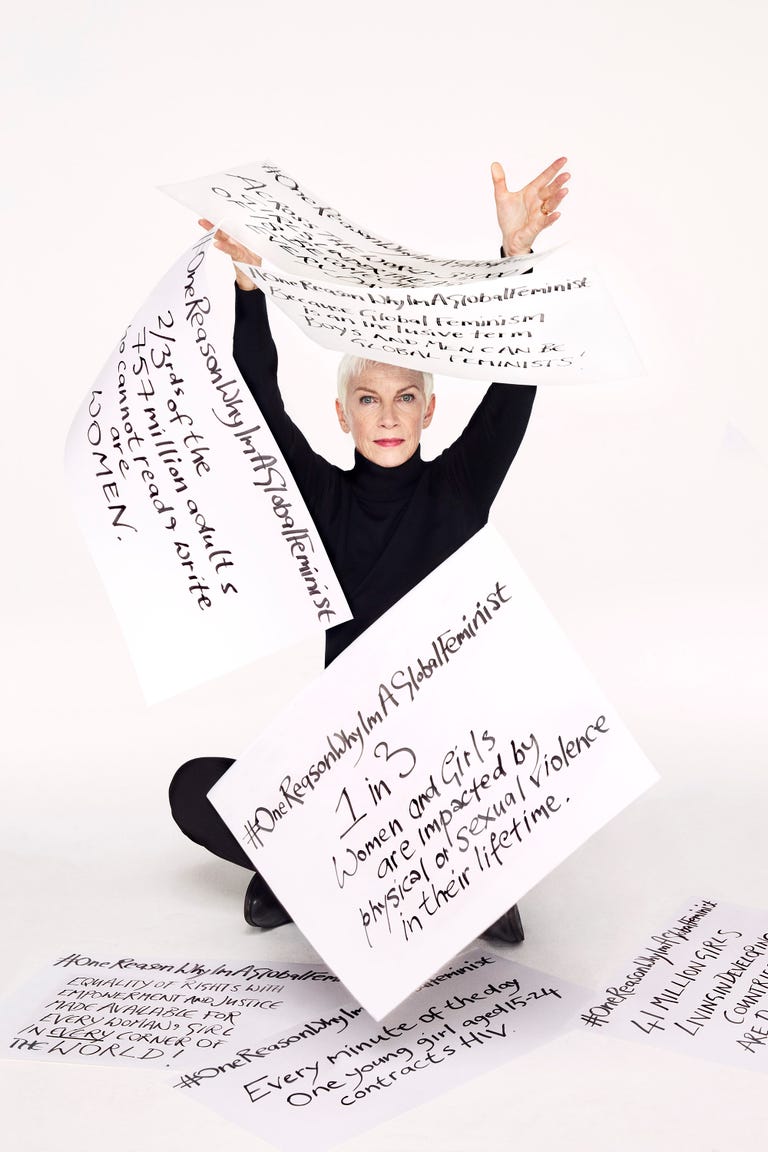 #OneReasonWhyImAGlobalFeminist
ACROSS THE WORLD
#OneReasonWhyImAGlobalFeminist
Because Global Feminism
is an inclusive term
BOYS AND MEN CAN BE
GLOBAL FEMINISTS!
#OneReasonWhyImAGlobalFeminist
2/3rds of the
757 million adults
who cannot read & write
are
WOMEN.
#OneReasonWhyImAGlobalFeminist
1 in 3
Women and Girls
are impacted by
physical or sexual violence
in their lifetime.
#OneReasonWhyImAGlobalFem
EQUALITY OF RIGHTS WITH
EMPOWERMENT AND JUSTICE
MADE AVAILABLE FOR
EVERY WOMAN & GIRL
IN EVERY CORNER OF
THE WORLD!
#OneReasonWhyIm lobalFeminist
Every minute of the day
One young girl aged 15-24
contracts HIV.
#OneReasonWhyImAGlobalFeminist
41 MILLION GIRLS
LIVING IN DEVELOPING
COUNTRIES
ARE D